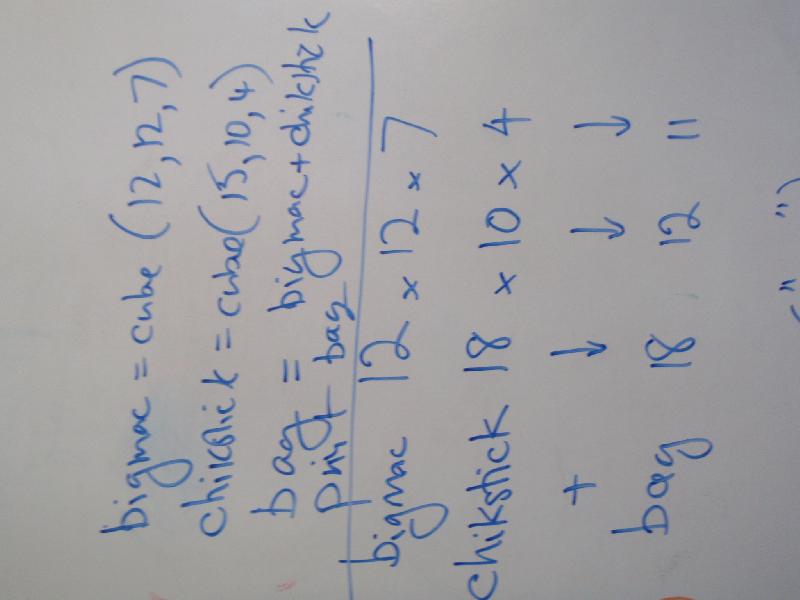 bigmac = cube (12,12,7)
chikstick = cube(15,10,4)
bag = bigmac+chikstick
print bag
bigmac 12 x 12 x 7
chikstick 18 x 10 x 4
+ ↓ ↓ ↓
bag 18 12 11
(" ")